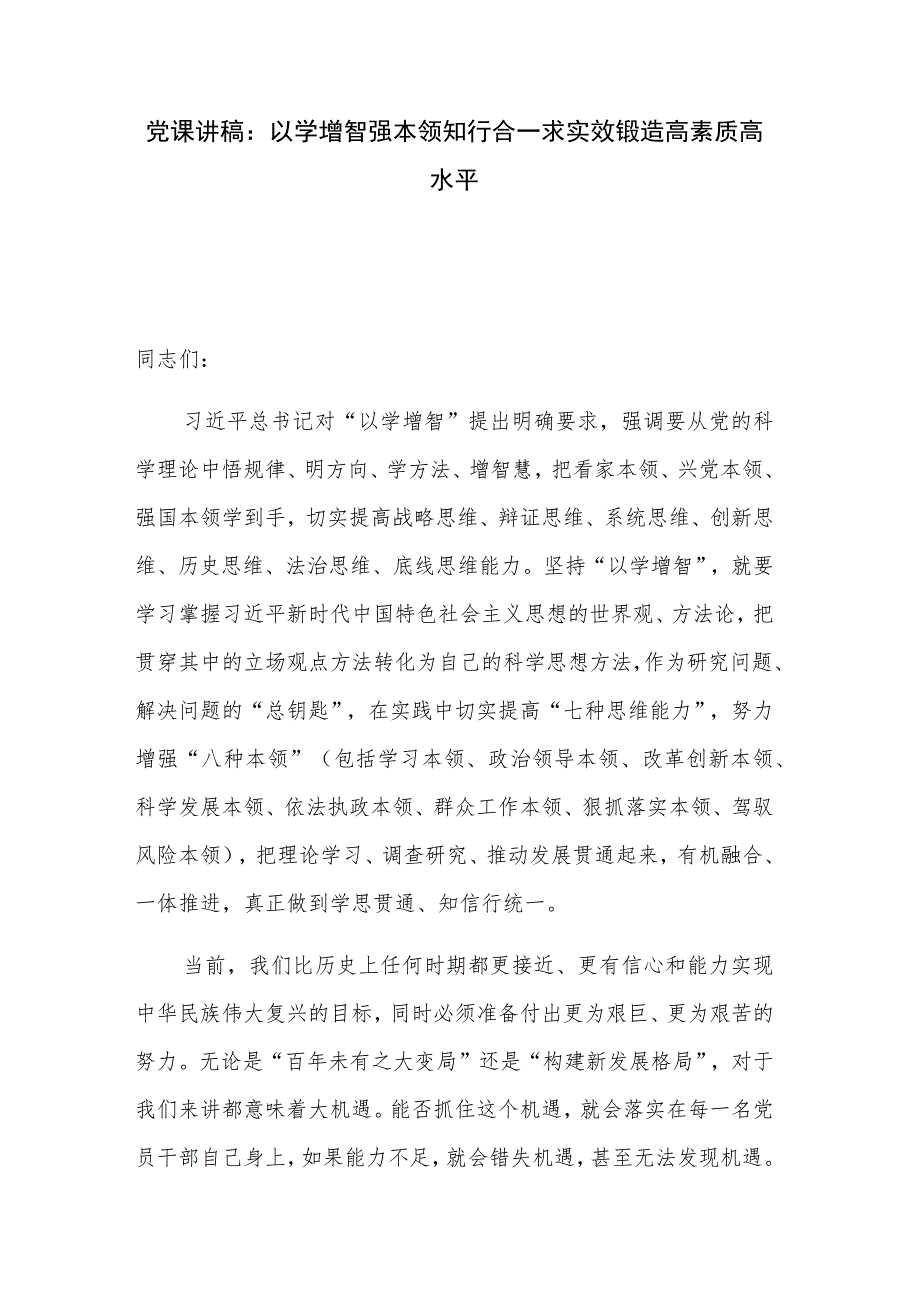 党课讲稿：以学增智强本领知行合一求实效锻造高素质高
水平
同志们：
习近平总书记对“以学增智”提出明确要求，强调要从党的科
学理论中悟规律、明方向、学方法、增智慧，把看家本领、兴党本领、
强国本领学到手，切实提高战略思维、辩证思维、系统思维、创新思
维、历史思维、法治思维、底线思维能力。坚持“以学增智”，就要
学习掌握习近平新时代中国特色社会主义思想的世界观、方法论，把
贯穿其中的立场观点方法转化为自己的科学思想方法，作为研究问题、
解决问题的“总钥匙”，在实践中切实提高“七种思维能力”，努力
增强“八种本领”（包括学习本领、政治领导本领、改革创新本领、
科学发展本领、依法执政本领、群众工作本领、狠抓落实本领、驾驭
风险本领），把理论学习、调查研究、推动发展贯通起来，有机融合、
一体推进，真正做到学思贯通、知信行统一。
当前，我们比历史上任何时期都更接近、更有信心和能力实现
中华民族伟大复兴的目标，同时必须准备付出更为艰巨、更为艰苦的
努力。无论是“百年未有之大变局”还是“构建新发展格局”，对于
我们来讲都意味着大机遇。能否抓住这个机遇，就会落实在每一名党
员干部自己身上，如果能力不足，就会错失机遇，甚至无法发现机遇。